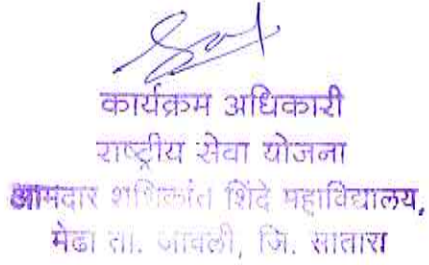 कार्यक्रम अधिकारी
राष्ट्रीय सेवा योजना
आमदार शशिकांत शिंदे महाविद्यालय,
मेढा ता. जावली, जि. सातारा